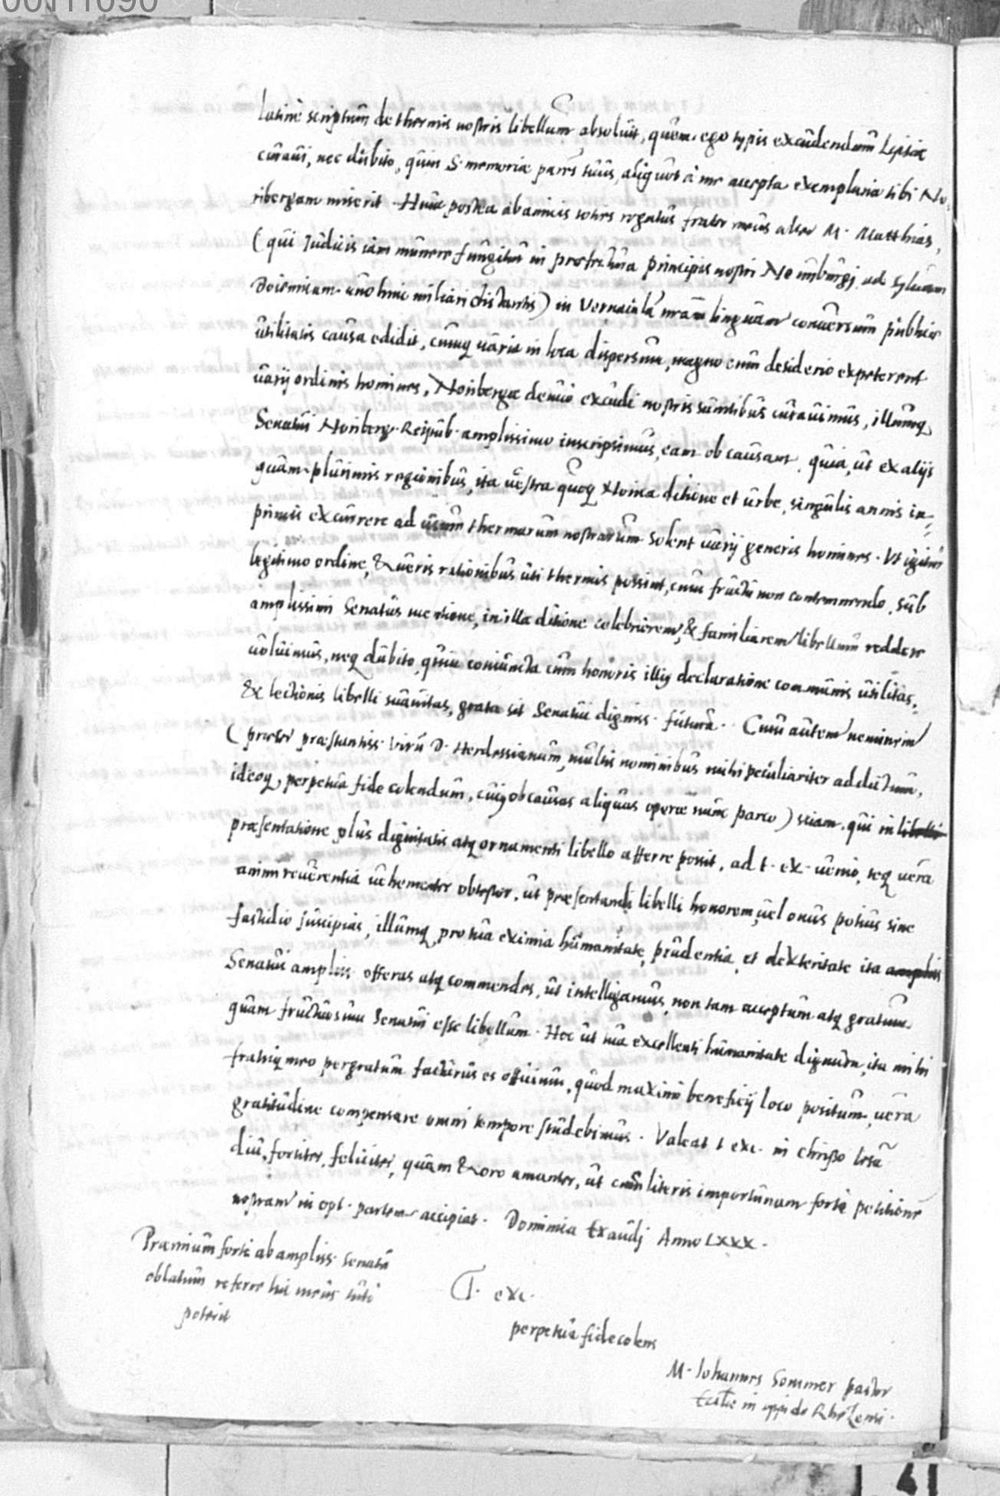 00111090
latinè scriptum de thermis nostris libellum absoluit, quem ego typis excudendum Lipsiæ
curaui, nec dubito, quin S. memoriæ parens tuus, aliquot à me accepta exemplaria tibi No-
ribergam miserit. Hunc postea ab amicis rogatus frater meus alter M. Matthias,
(qui Judicis iam munere fungitur in præfectura principis nostri Neoburgj ad syluam
Boiemicam uno hinc miliari distantis) in Vernaculã nrãm linguam conuersum publicæ
utilitatis causa edidit, cumq varia in loca dispersum, magno cum desiderio expeterent
uarij ordinis homines, Noribergæ denuò excudi nostris sumtibus curauimus, illumq
Senatui Noriberg. Reipub. amplissimo inscripsimus, eam ob causam, quia, ut ex alijs
quàm plurimis regionibus, ita uestra quoq Norica ditione et urbe, singulis annis in-
primis excurrere ad usum thermarum nostrarum solent uarij generis homines. Vt igitur
legitimo ordine, & ueris rationibus uti thermis possint, cum fructu non contemnendo, sub
amplissimi Senatus mentione, in illa ditione celebriorem, & familiarem libellum reddere
uoluimus, neq dubito, quin coniuncta cum honoris illius declaratione communis utilitas,
Ex lectionis libelli suauitas, grata sit Senatui digniss. futura. Cum autem neminem
(præter præstantiss. virum D. Herdessianum, multis nominibus mihi peculiariter addictum,
ideoq perpetua fide colendum, cui ob causas aliquas operæ nunc parco) sciam, qui in libelli
præsentatione plus dignitatis atq ornamenti libello afferre possit, ad t. ex. uenio, teq uera
animi reuerentia uehementer obtestor, ut præsentandi libelli honorem, uel onus potius sine
fastidio suscipias, illumq, pro tua eximia humanitate, prudentia, et dexteritate ita ampliss
Senatui ampliss offeras atq commendes, ut intelligamus, non tam acceptum atq gratum
quàm fructuosum Senatui esse libellum. Hoc ut tua excellenti humanitate dignum, ita mihi
fratriq meo pergratum facturus es officium, quod maximi beneficij loco positum, uera
gratitudine compensare omni tempore studebimus. Valeat t exc. in christo Iesu
diu, fortiter, feliciter, quam & oro amanter, ut cum literis importunam fortè petitionem
nostram in opt. partem accipiat. Dominica Exaudj Anno LXXX.
Præmium fortè ab ampliss. senatu
oblatum referre meus tutò
poterit
T. exc.
perpetua fide colens
M. Iohannes Sommer pastor
Ecclæ in oppido